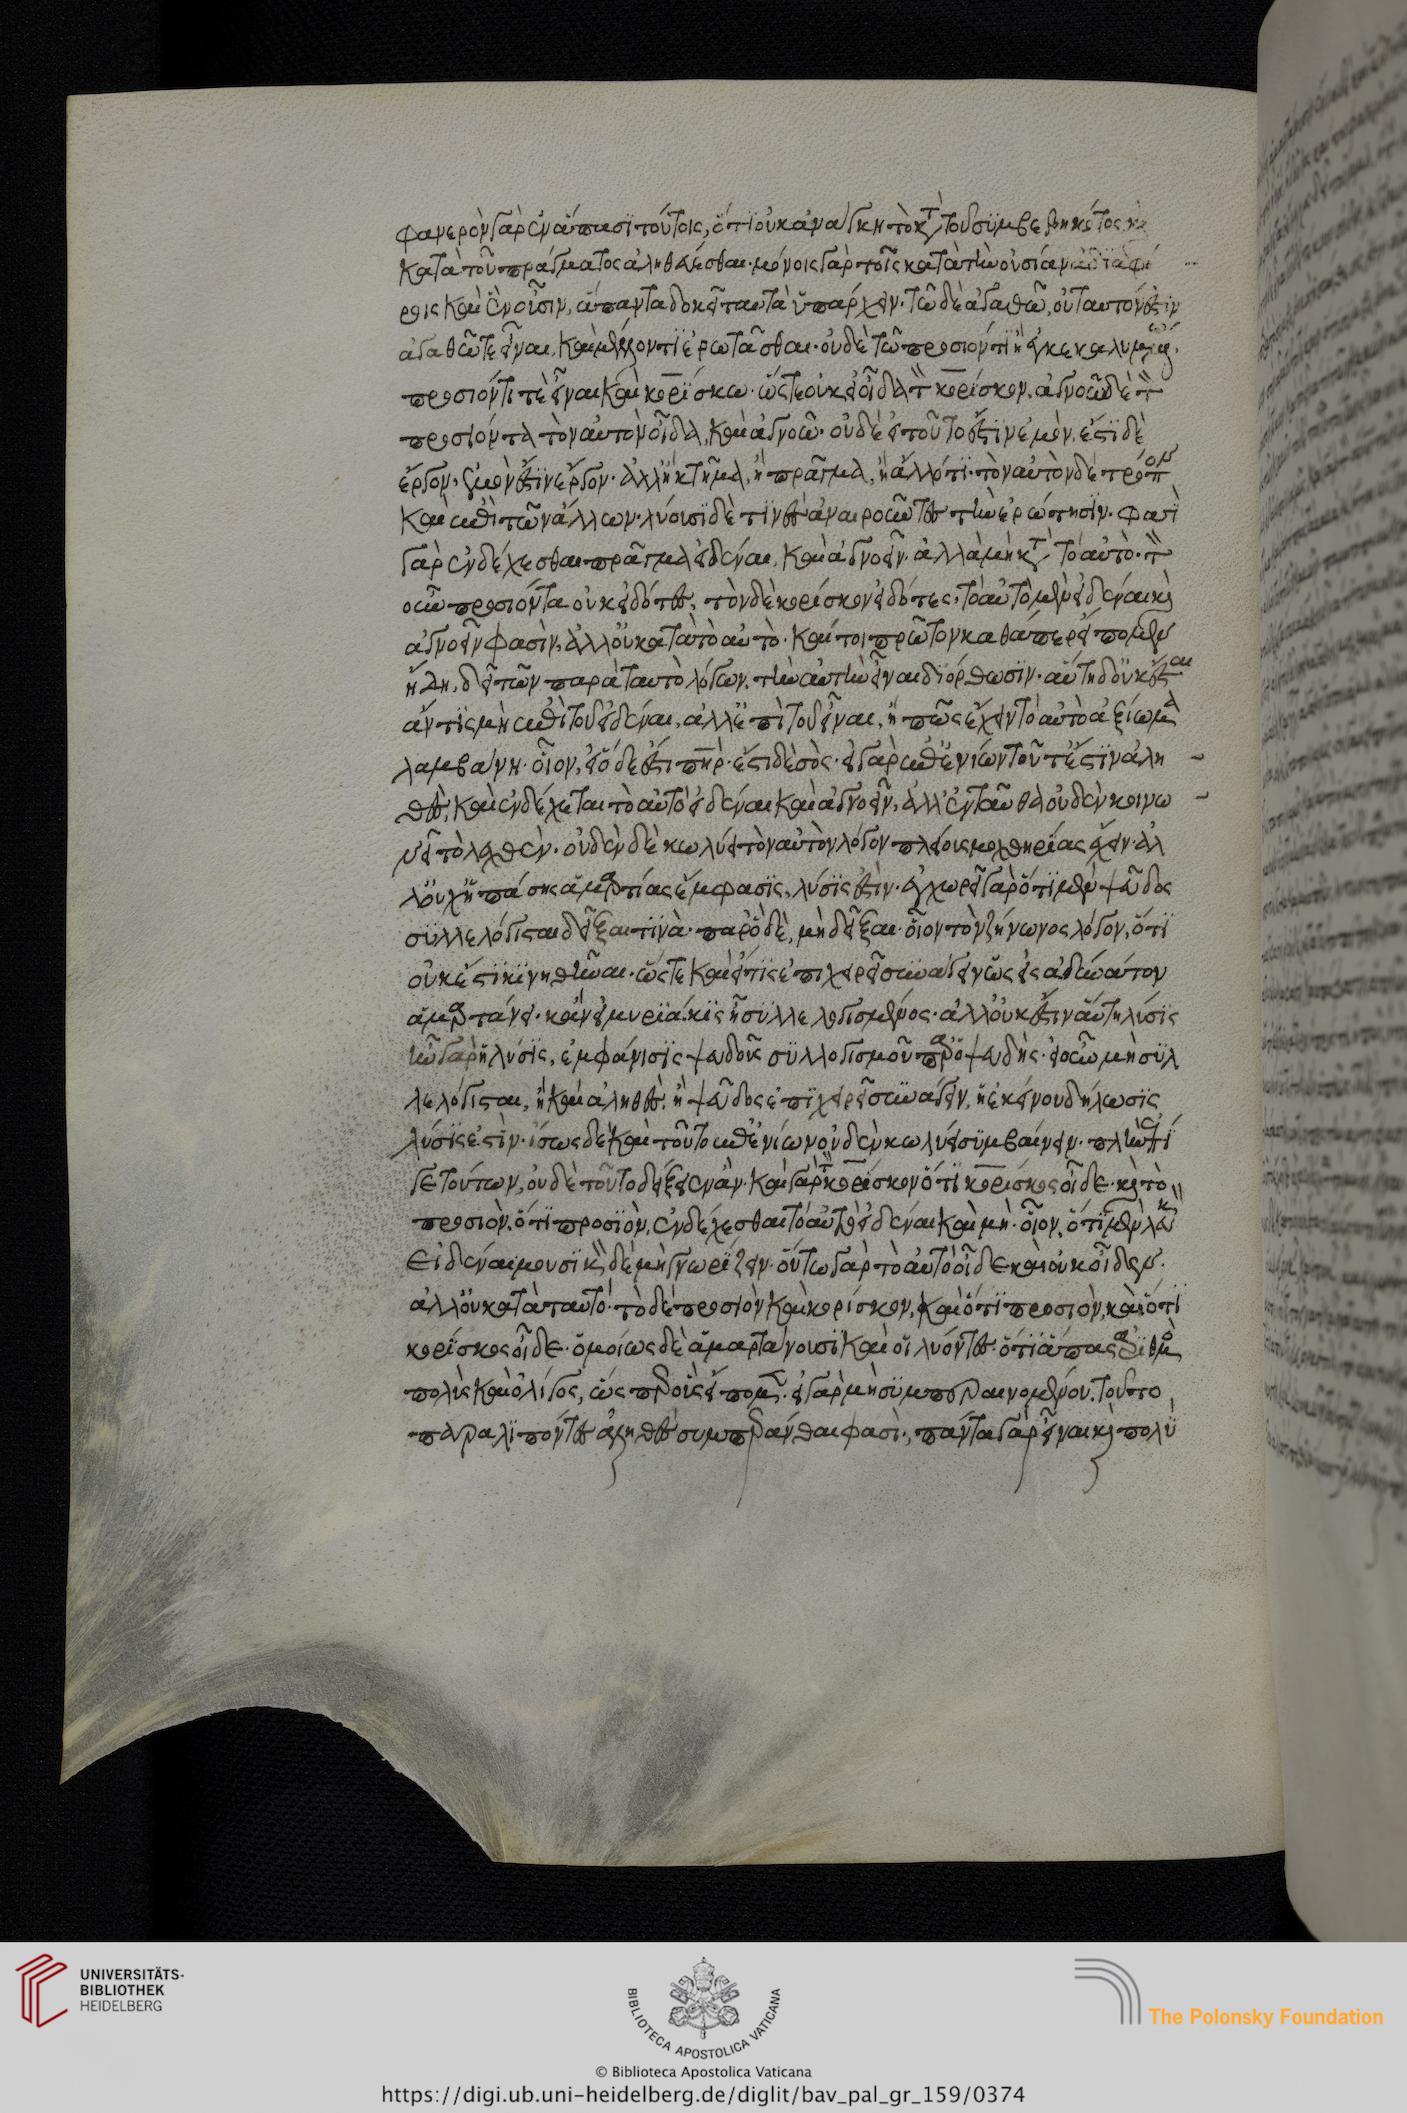 φανερὸν γὰρ ἐν ἅπασι τούτοις, ὅτι οὐκ ἀνάγκη τὸ κατὰ τοῦ συμβεβηκότος καὶ
κατὰ τοῦ πράγματος ἀληθεύεσθαι· μόνοις γὰρ τοῖς κατὰ τὴν οὐσίαν ἀδιαφό
ροις καὶ ἓν οὖσιν, ἅπαντα δοκεῖ ταυτὰ ὑπάρχειν· τῶ δὲ ἀγαθῶ, οὐ ταυτόν ἐστιν
ἀγαθῶ τε εἶναι, καὶ μέλλοντι ἐρωτᾶσθαι· οὐδὲ τῶ προσιόντι ἢ ἐγκεκαλυμμένω,
προσιόντι τὲ εἶναι καὶ κορίσκω· ὥστε οὐκ εἰ οἶδα τὸν κορίσκον, ἀγνοῶ δὲ τὸν
προσιόντα τὸν αὐτὸν οἶδα, καὶ ἀγνοῶ· οὐδὲ εἰ τοῦτο ἐστὶν ἐμὸν, ἐστὶ δὲ
ἔργον, ἐμὸν ἐστὶν ἔργον· ἀλλ' ἢ κτῆμα, ἢ πρᾶγμα, ἢ ἄλλό τι· τὸν αὐτὸν δὲ τρόπον
καὶ ἐπὶ τῶν ἄλλων· λύουσι δὲ τινὲς ἀναιροῦντες τὴν ἐρώτησιν· φασὶ
γὰρ ἐνδέχεσθαι πρᾶγμα εἰδέναι, καὶ ἀγνοεῖν· ἀλλὰ μὴ κατὰ τὸ αὐτὸ· τὸν
οὖν προσιόντα οὐκ εἰδότες, τὸν δὲ κορίσκον εἰδότες, τὸ αὐτὸ μὲν εἰδέναι καὶ
ἀγνοεῖν φασὶν, ἀλλ' οὐ κατὰ τὸ αὐτὸ· καί τοι πρῶτον καθάπερ εἴπομεν
ἤδη, δεῖ τῶν παρὰ ταυτὸ λόγων, τὴν αὐτὴν εἶναι διόρθωσιν· αὕτη δ' οὐκ ἔσται
ἄν τις μὴ ἐπὶ τοῦ εἰδέναι, ἀλλ' ἐπὶ τοῦ εἶναι, ἢ πῶς ἔχειν τὸ αὐτὸ ἀξίωμα
λαμβάνη· οἷον, εἰ ὅδε ἐστὶ πατήρ· ἔστι δὲ σὸς· εἰ γὰρ ἐπ' ἐνίων τοῦτ' ἐστὶν ἀλη
θὲς, καὶ ἐνδέχεται τὸ αὐτὸ εἰδέναι καὶ ἀγνοεῖν, ἀλλ' ἐνταῦθα οὐδὲν κοινω
νεῖ τὸ λεχθέν· οὐδὲν δὲ κωλύει τὸν αὐτὸν λόγον πλείους μοχθηρίας ἔχειν· ἀλ
λ' οὐχ ἡ πάσης ἁμαρτίας ἔμφασις, λύσίς ἐστιν· ἐγχωρεῖ γὰρ ὅτι μὲν ψεῦδος
συλλελόγισται δεῖξαι τινὰ· παρ' ὃ δὲ, μὴ δεῖξαι· οἷον τὸν ζήνωνος λόγον, ὅτι
οὐκ ἔστι κινηθῆναι· ὥστε καὶ εἴ τις ἐπιχειρεῖ συνάγειν ὡς εἰς ἀδύνατον
ἁμαρτάνει· κἂν εἰ μυριάκις ἦ συλλελογισμένος· ἀλλ' οὐκ ἔστιν αὕτη λύσις
ἦν γὰρ ἡ λύσις, ἐμφάνισις ψευδοῦς συλλογισμοῦ παρ' ὃ ψευδής· εἰ οὖν μὴ συλ
λελόγισται, ἢ καὶ ἀληθὲς, ἢ ψεῦδος ἐπιχειρεῖ συνάγειν, ἡ ἐκείνου δήλωσις
λύσίς ἐστὶν· ἴσως δὲ καὶ τοῦτο ἐπ' ἐνίων οὐδὲν κωλύει συμβαίνειν· πλὴν ἐπί
γε τούτων, οὐδὲ τοῦτο δείξειεν ἂν· καὶ γὰρ τὸν κορίσκον ὅτι κορίσκος οἶδε· καὶ τὸ
προσιὸν, ὅτι προσιὸν, ἐνδέχεσθαι τὸ αὐτὸ εἰδέναι καὶ μὴ· οἷον, ὅτι μὲν λευκὸν
εἰδέναι μουσικὸν δὲ μὴ γνωρίζειν· οὕτω γὰρ τὸ αὐτὸ οἶδε καὶ οὐκ οἶδεν·
ἀλλ' οὐ κατὰ ταυτό· τὸ δὲ προσιὸν καὶ κορίσκον, καὶ ὅτι προσιὸν, καὶ ὅτι
κορίσκος οἶδε· ὁμοίως δὲ ἁμαρτάνουσι καὶ οἱ λύοντες· ὅτι ἅπας ἀριθμὸς
πολὺς καὶ ὀλίγος, ὡς πρ οὓς εἴπομεν· εἰ γὰρ μὴ συμπεραινομένου, τοῦτο
παραλιπόντες ἀληθὲς συμπεράνθαι φασὶ, πάντα γὰρ εἶναι καὶ πολὺ
UNIVERSITÄTS-
BIBLIOTHEK
HEIDELBERG
BIBLIOTECA APOSTOLICA VATICANA
The Polonsky Foundation
© Biblioteca Apostolica Vaticana
https://digi.ub.uni-heidelberg.de/diglit/bav_pal_gr_159/0374